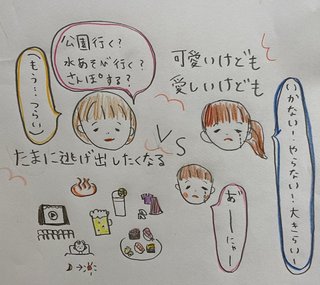 公園行く?
水あそび行く?
さんぽする?
(もう…つらい)
可愛いけども
愛しいけども
VS
いかない!やらない!大きらい!
たまに逃げ出したくなる
あーーにゃー